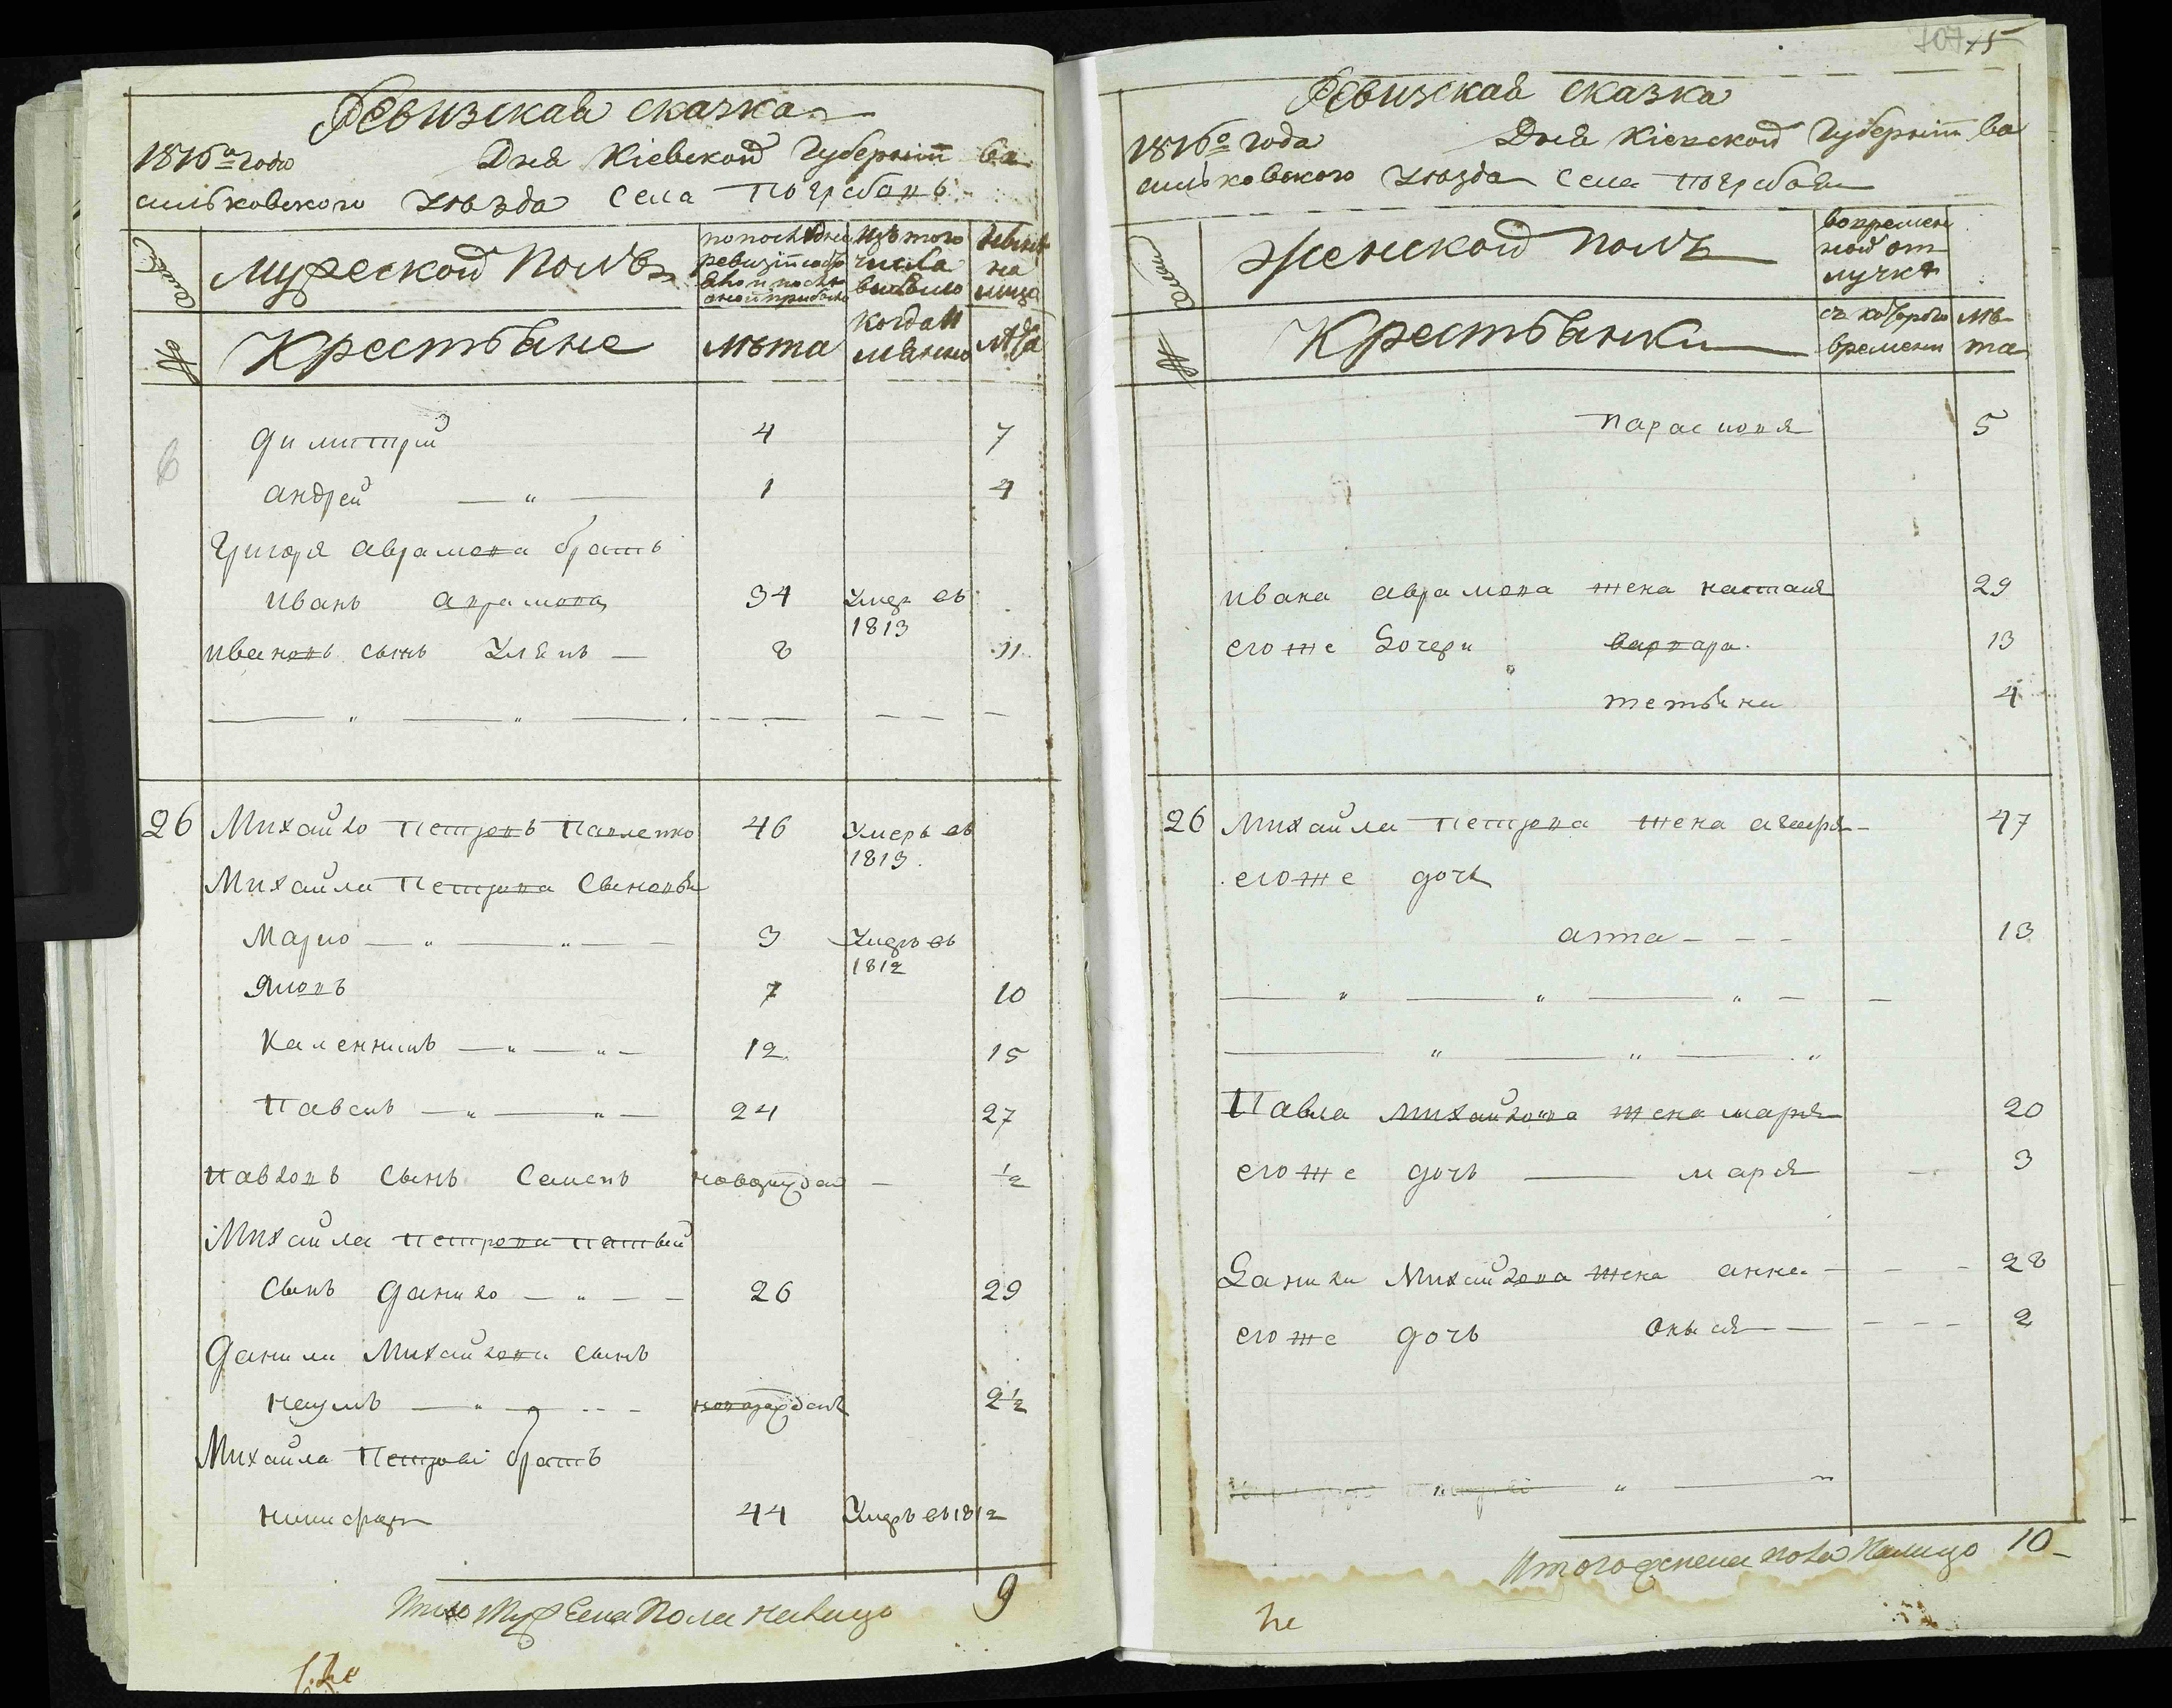 Ревизская сказка
1816го года Дня Кіевской Губерніи Ва
сильковского уѣзда села Погребовъ
семьи
Мужеской полъ
по последней ревизіи
изъ того числа выбыло
нынѣ на лицо
№
Крестьяне
лѣта
когда и
лѣта
Димитрий 4 7
андрей — " — 1 4
Григоря аврамова братъ
иванъ аврамовъ 34 Умер въ 1813
ивановъ сынъ Улянъ — 8 11
26 Михайло Петровъ Павленко 46 Умеръ въ 1813
Михайла Петрова сыновья
Марко — " — " — 3 Умръ въ 1812
Яковъ 7 10
Каленникъ — " — " — 12 15
Павелъ — " — " — 24 27
Павловъ сынъ Семенъ новорожден — ½
Михайла Петрова пятый
сынъ Данило — " — — 26 29
Данила Михайлова сынъ
Наумъ — " — новорожденъ 2½
Михайла Петрова братъ
никифоръ 44 Умръ въ 1812
Итого Мужеска Пола налицо 9
107 15
Ревизская сказка
1816го года Дня Кіевской Губерніи Ва
сильковского уѣзда села Погребовъ
семьи
Женской полъ
во временной отлучкѣ
№
Крестьянки
съ которого времени
лѣта
параскопия 5
ивана аврамова жена настася 29
егоже дочери варвара 13
тетьяна 4
26 Михайла Петрова жена агафия — 47
егоже дочь
анна — — — 13
Павла Михайлова жена мария 20
егоже дочь — мария — 3
Данила Михайлова жена анна — — — 28
егоже дочь 2
Итого женска пола налицо 10